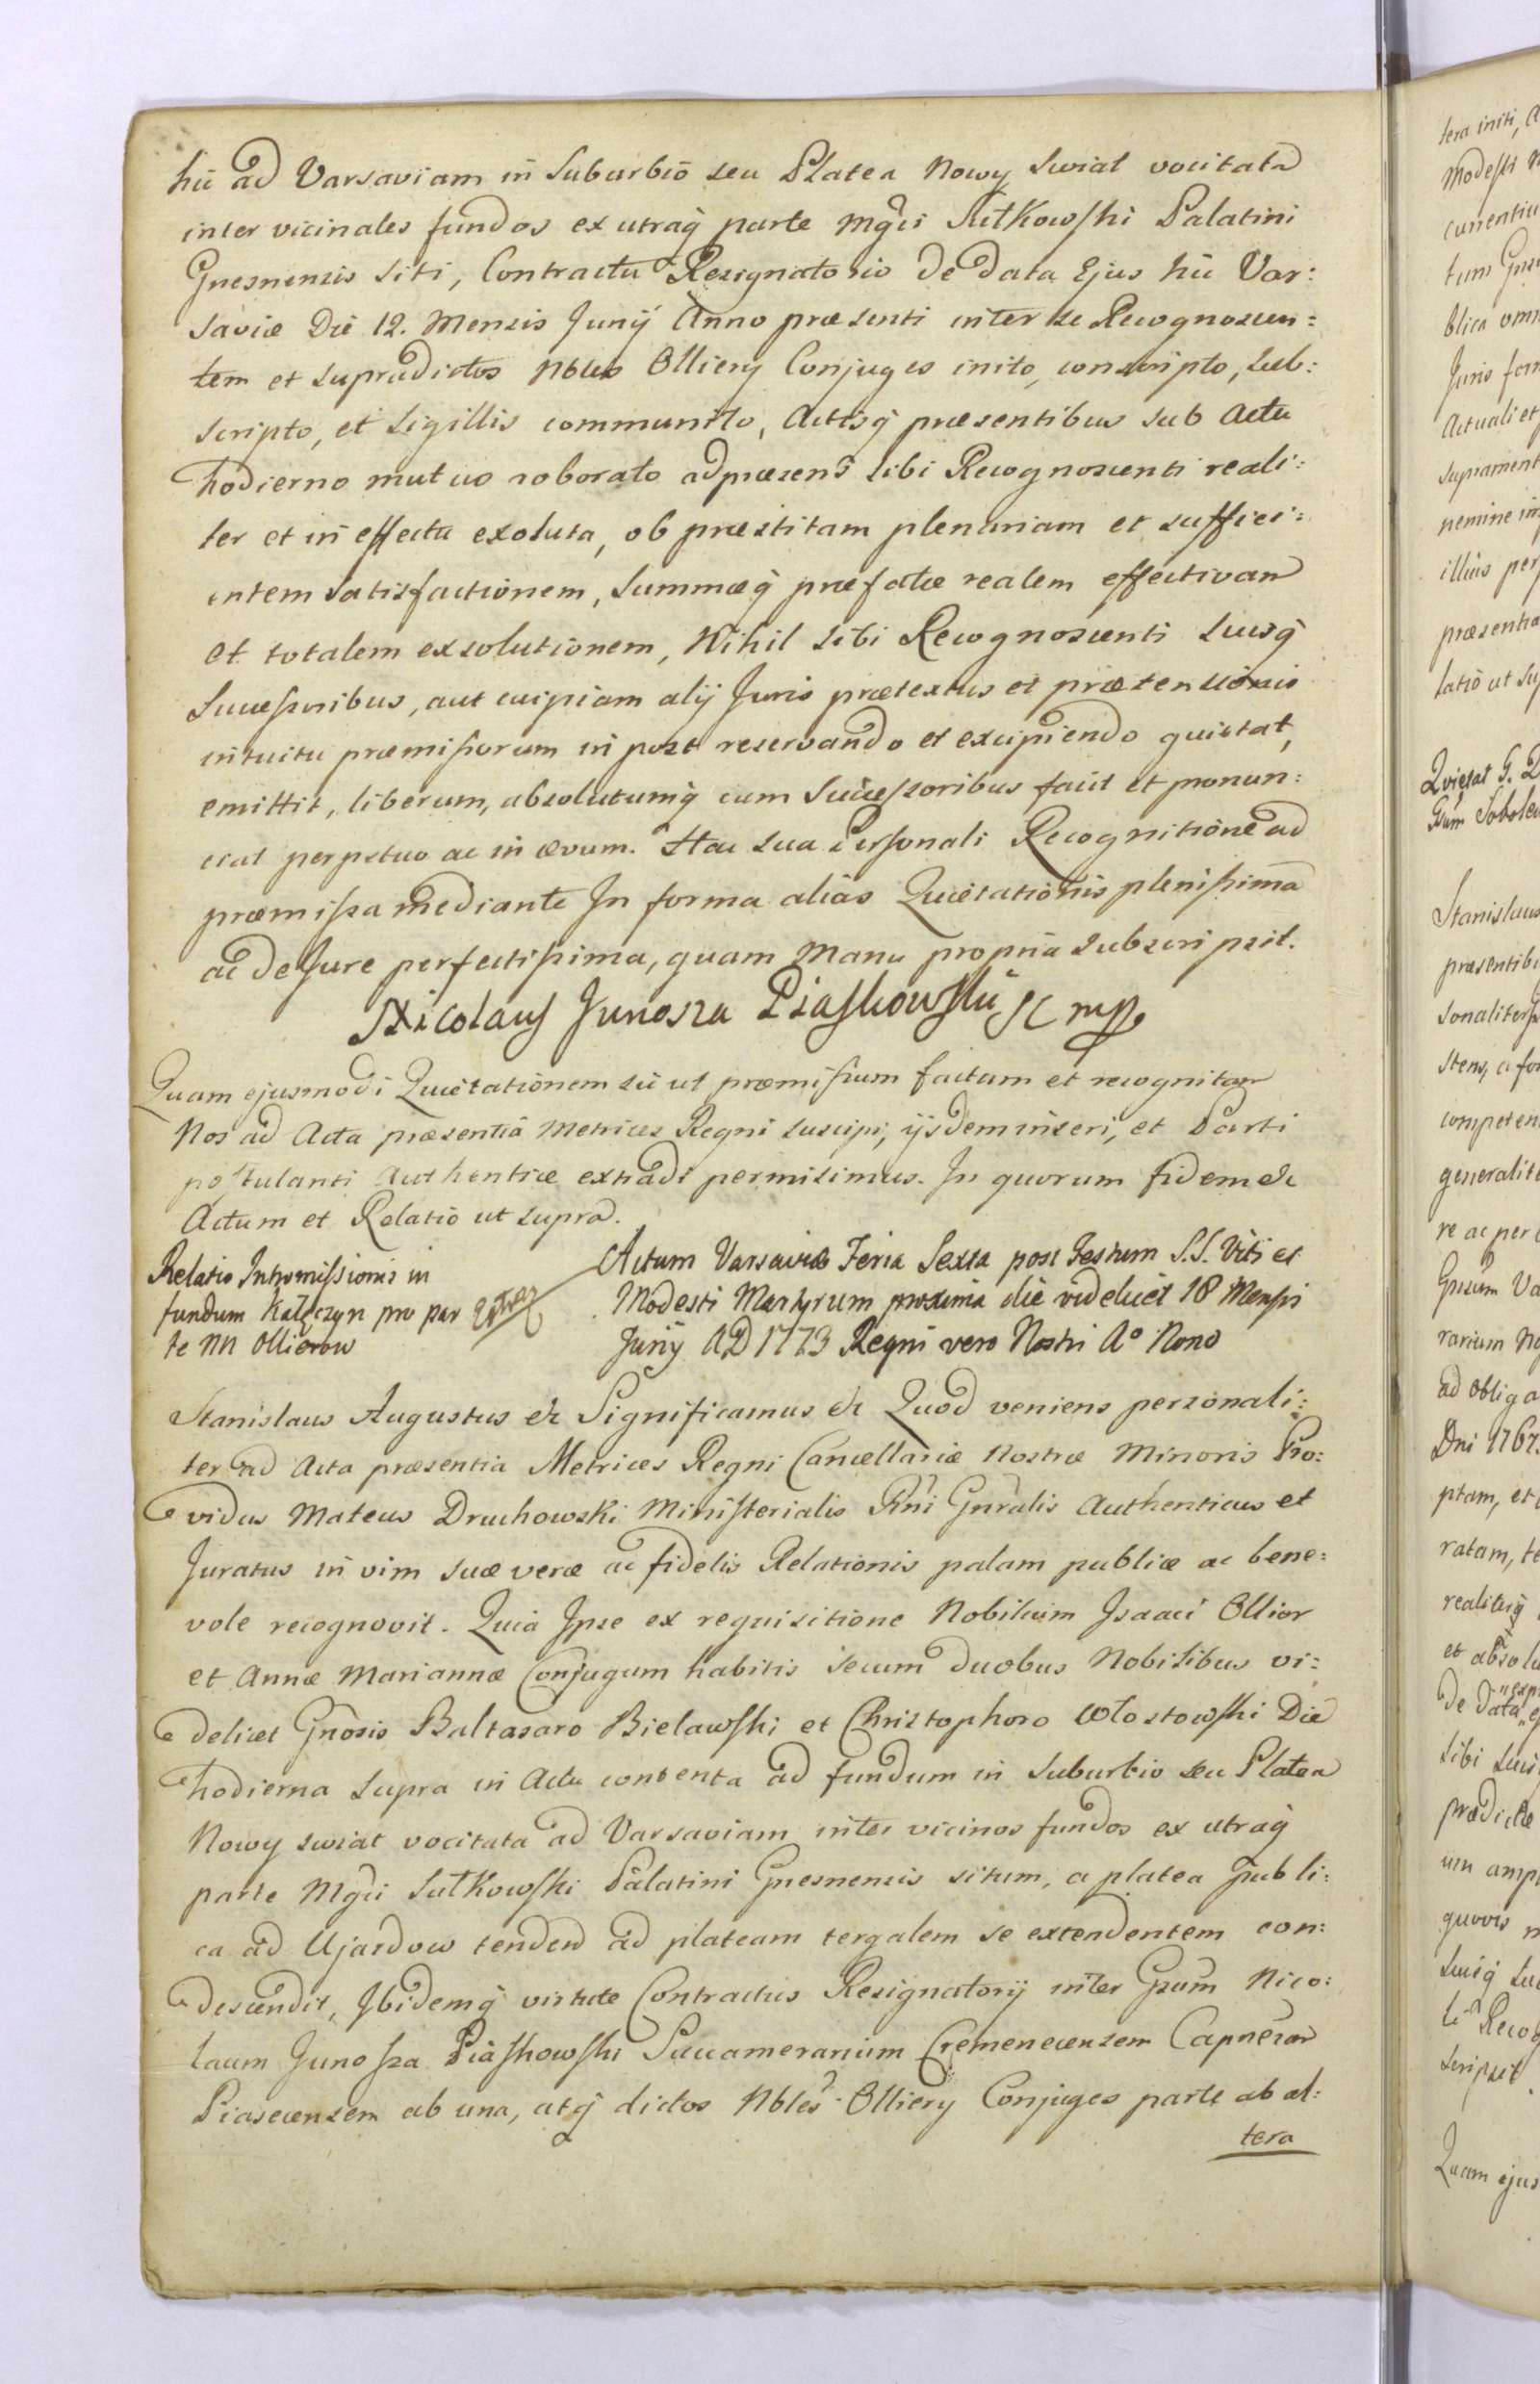 hic ad Varsaviam in Suburbio seu Platea Nowy Swiat vocitata
inter vicinales fundos ex utraq̃ parte Mgci Sułkowski Palatini
Gnesnensis siti, Contractu Resignatorio de data Ejus hic Var:
saviæ Die 12. Mensis Junij Anno præsenti inter se Recognoscen:
tem et supradictos Nbles Olliery Conjuges inito, conscripto, sub:
scripto, et sigillis communito, Actisq̃ præsentibus sub Actu
hodierno mutuo roborato adpræsens sibi Recognoscenti reali:
ter et in effectu exoluta, ob præstitam plenariam et suffici:
entem satisfactionem, Summæq̃ præfatæ realem effectivam
et totalem exsolutionem, Nihil sibi Recognoscenti suisq̃
Successoribus, aut cuipiam alij Juris prætextus et prætensionis
intuitu præmissorum in post reservando et excipiendo quietat,
emittit, liberum, absolutumq̃ cum Successoribus facit et pronun:
ciat perpetuo ac in ævum. Hac sua Personali Recognitione ad
præmissa mediante In forma alias Quietationis plenissima
ac de Jure perfectissima, quam Manu propria subscripsit.
Nicolaus Junosza Piaskowski SK mpp
Quam ejusmodi Quietationem sic ut præmissum factam et recognitam
Nos ad Acta præsentia Metrices Regni suscipi, ijsdem inseri, et Parti
postulanti Authentice extradi permisimus. In quorum fidem &c
Actum et Relatio ut supra.
Relatio Intromissionis in
fundum Kałęczyn pro par
te NN Ollierow
Extrad
Actum Varsaviæ Feria Sexta post Festum S.S. Viti et
Modesti Martyrum proxima die videlicet 18 Mensis
Junij AD 1773 Regni vero Nostri A° Nono
Stanislaus Augustus &c Significamus &c Quod veniens personali:
ter ad Acta præsentia Metrices Regni Cancellariæ Nostræ Minoris Pro:
vidus Mateus Druchowski Ministerialis Rni Gnralis Authenticus et
Juratus in vim suæ veræ ac fidelis Relationis palam publice ac bene:
vole recognovit. Quia Ipse ex requisitione Nobilium Isaaci Ollier
et Annæ Mariannæ Conjugum habitis secum duobus Nobilibus vi:
delicet Gnosis Baltasaro Bielawski et Christophoro Włostowski Die
hodierna supra in Actu contenta ad fundum in Suburbio seu Platea
Nowy swiat vocitata ad Varsaviam inter vicinos fundos ex utraq̃
parte Mgci Sułkowski Palatini Gnesnensis situm, a platea publi:
ca ad Ujazdow tenden ad plateam tergalem se extendentem con:
descendit, Ibidemq̃ virtute Contractus Resignatorij inter Gsum Nico:
laum Junosza Piaskowski Succamerarium Cremenecensem Capneum
Piasecensem ab una, atq̃ dictos Nbles Olliery Conjuges parte ab al:
tera